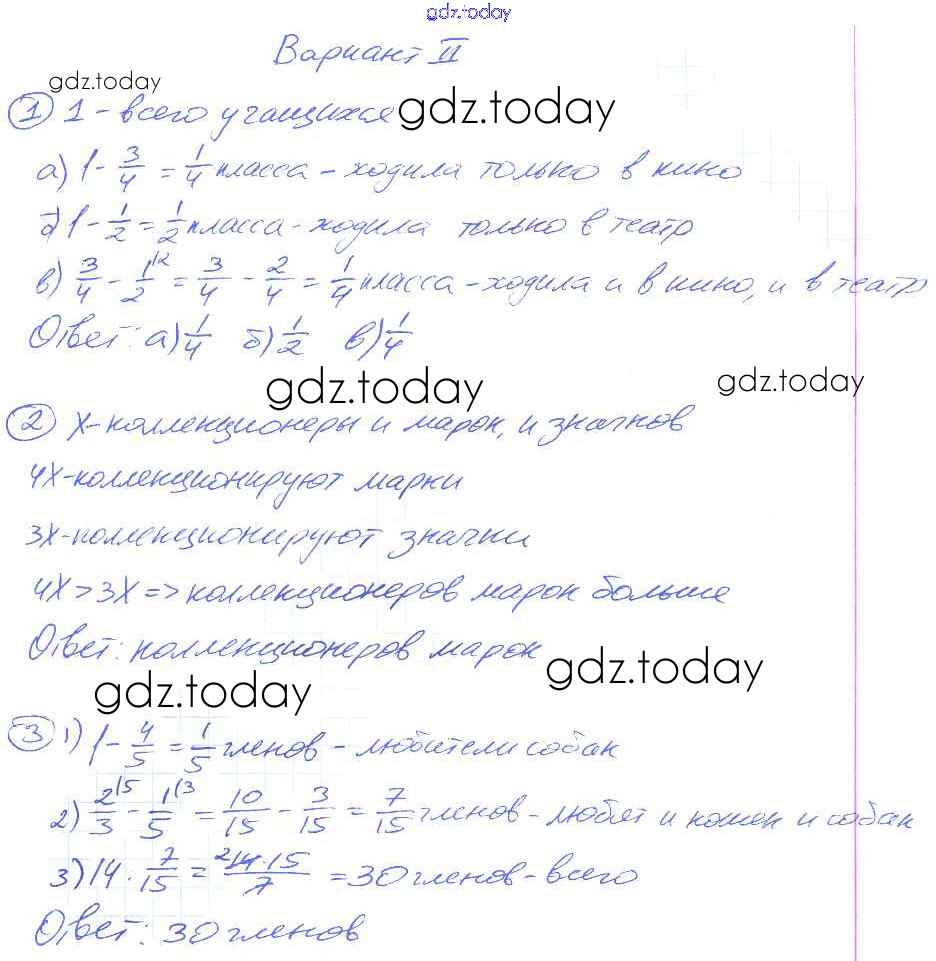 gdz.today
Вариант II
gdz.today
① 1 - всего учащихся gdz.today
а) 1 - 3/4 = 1/4 класса - ходила только в кино
б) 1 - 1/2 = 1/2 класса - ходила только в театр
в) 3/4 - 1/2 (2 = 3/4 - 2/4 = 1/4 класса - ходила и в кино, и в театр
Ответ: а) 1/4 б) 1/2 в) 1/4
gdz.today gdz.today
② х - коллекционеры и марок, и значков
4х - коллекционируют марки
3х - коллекционируют значки
4х > 3х => коллекционеров марок больше
Ответ: коллекционеров марок
gdz.today gdz.today
③ 1) 1 - 4/5 = 1/5 членов - любители собак
2) 2/3 (5 - 1/5 (3 = 10/15 - 3/15 = 7/15 членов - любят и кошек и собак
3) 14 · 7/15 = 2 14·15/7 = 30 членов - всего
Ответ: 30 членов